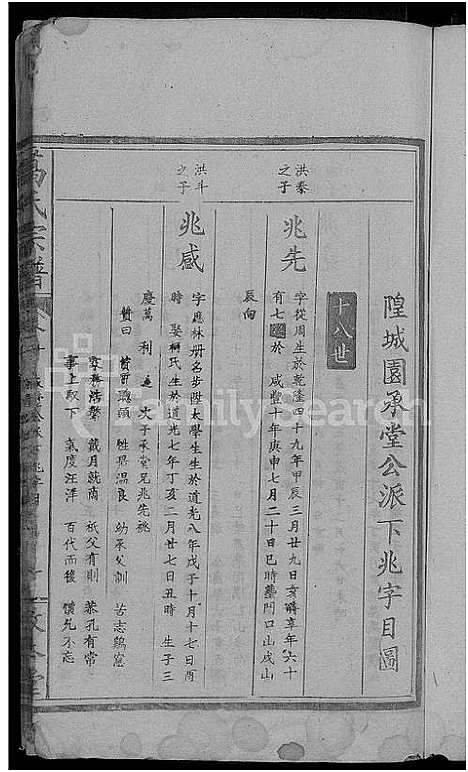 隍城園承堂公派下兆字目圖
十八世
洪泰之子
兆先
字從周生於乾隆四十九年甲辰三月廿九日亥時享年六十
有七歿於 咸豐十年庚申七月二十日巳時葬門口山戌山
辰向
洪斗之子
兆感
字應林册名步陞太學生生於道光八年戊子十月十七日酉
時 娶柯氏生於道光七年丁亥二月廿七日丑時 生子三
慶萬 利 達 次子承堂兄兆先祧
贊曰 頭 性稟溫良 幼承父訓 苦志鷄窓
戴月就南 祇父有則 恭孔有常
事上取下 氣度汪洋 百代而後 懷允不忘
氏宗譜
FamilySearch